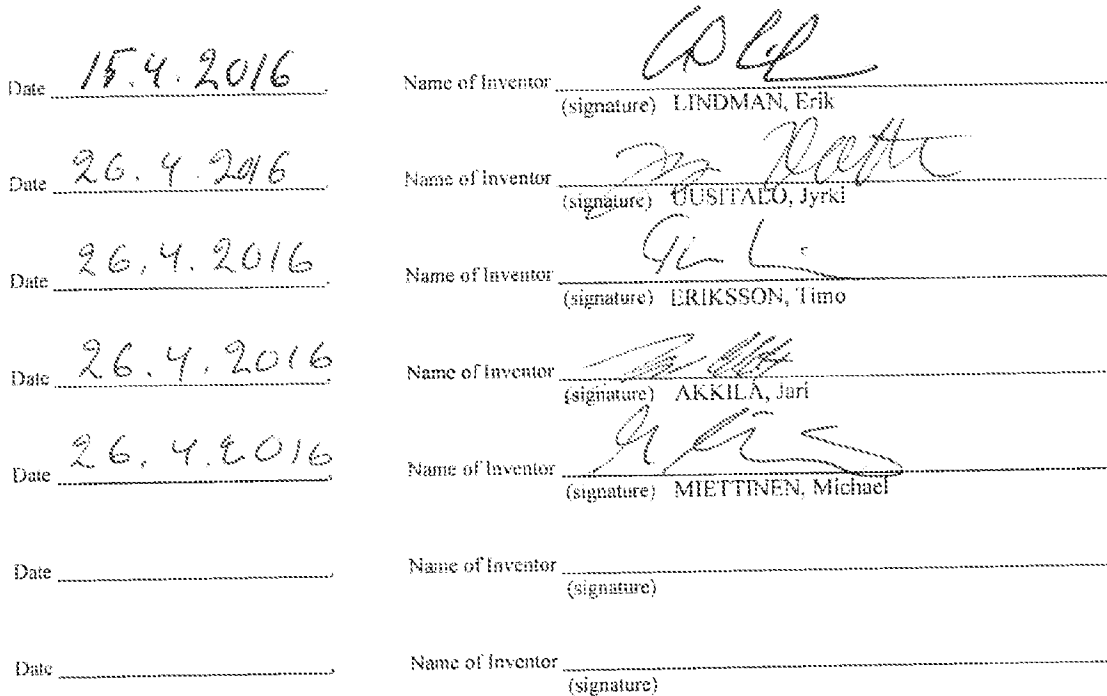 Date 15.4.2016 Name of Inventor
(signature) LINDMAN, Erik
Date 26.4.2016 Name of Inventor
(signature) UUSITALO, Jyrki
Date 26.4.2016 Name of Inventor
(signature) ERIKSSON, Timo
Date 26.4.2016 Name of Inventor
(signature) AKKILA, Jari
Date 26.4.2016 Name of Inventor
(signature) MIETTINEN, Michael
Date Name of Inventor
(signature)
Date Name of Inventor
(signature)